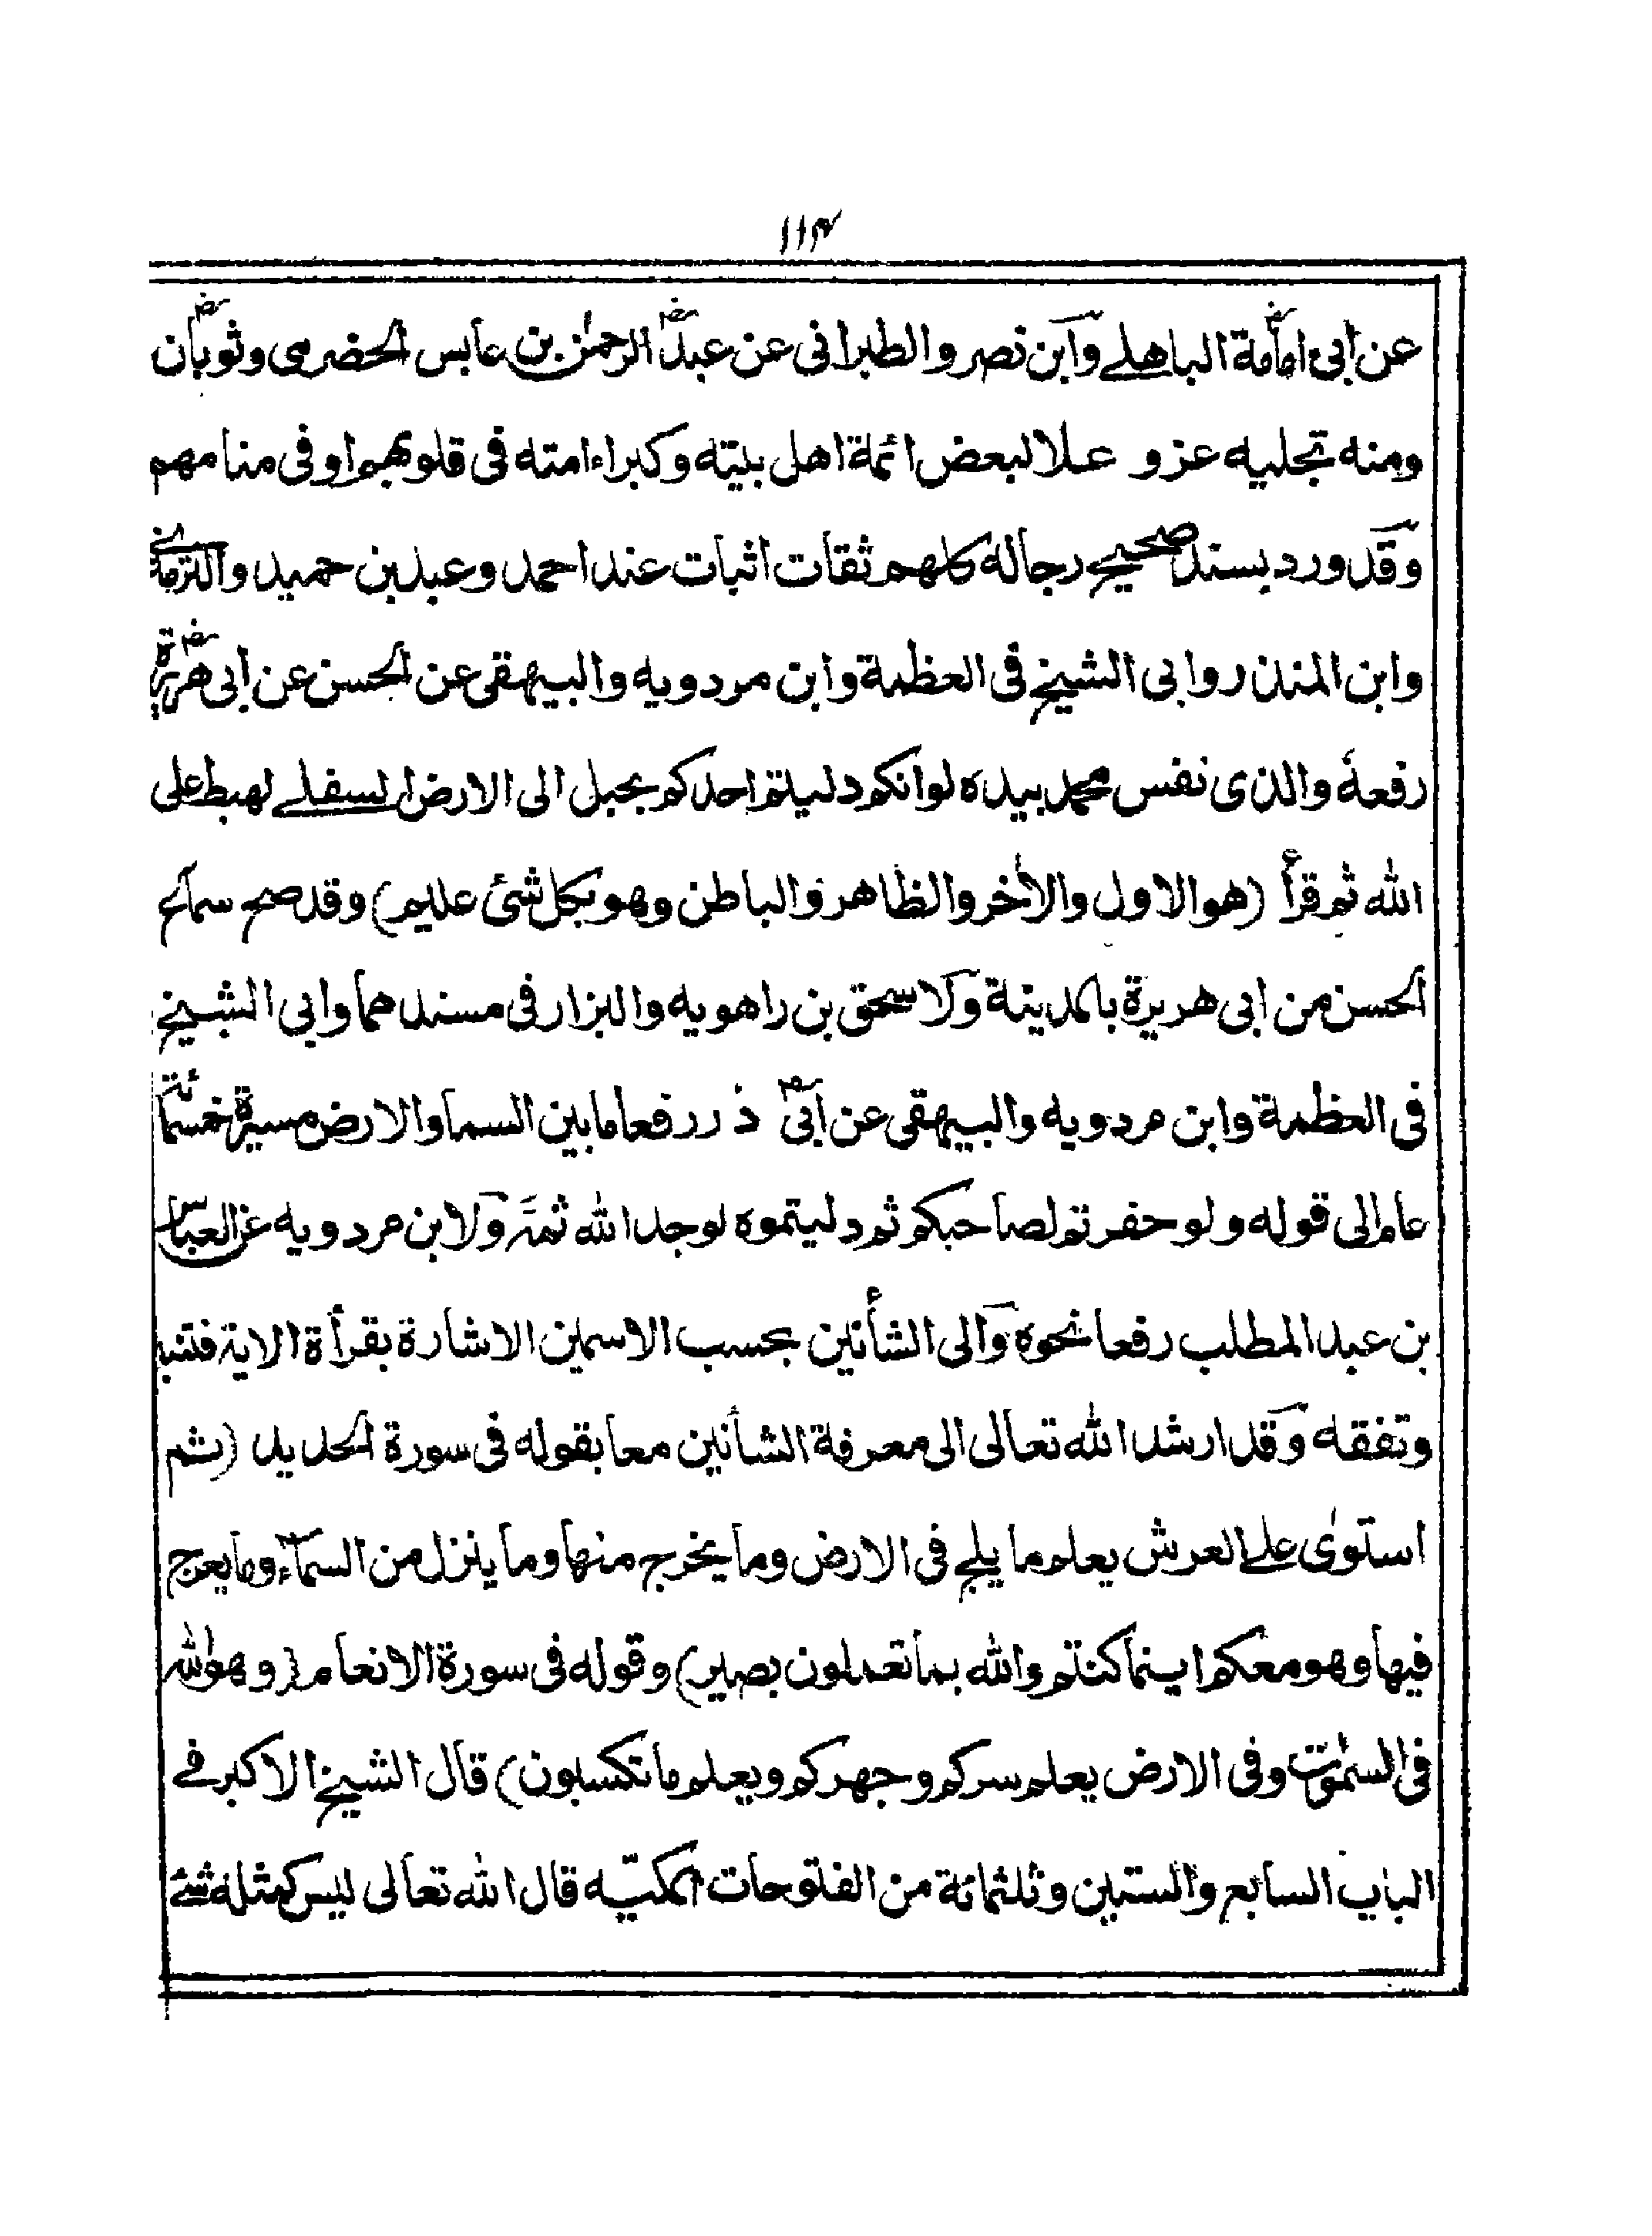 ١١٤
عن أبي امامة الباهلے وابن نصر والطبرانى عن عبد الرحمٰن بن عابس الحضرمى وثوبان
ومنه تجليه عز و علا لبعض ائمة اهل بيته وكبراء امته فى قلوبهم او فى منامهم
وقد ورد بسند صحيح رجاله كلهم ثقات اثبات عند احمد وعبد بن حميد والترمذى
وابن المنذر وابى الشيخ فى العظمة وابن مردويه والبيهقى عن الحسن عن أبى هريرة
رفعه والذى نفس محمد بيده لوانكم دليتم احدكم بحبل الى الارض السفلے لهبط على
الله ثم قرأ (هو الاول والاٰخر والظاهر والباطن وهو بكل شئ عليم) وقد صح سماع
الحسن من ابى هريرة بالمدينة ولاسحق بن راهويه والبزار فى مسندهما وابى الشيخ
فى العظمة وابن مردويه والبيهقى عن أبى ذر رفعا مابين السما والارض مسيرة خمسمائة
عام الى قوله ولو حفرتم لصاحبكم ثم دليتموه لوجد الله ثمة ولابن مردويه عن العباس
بن عبد المطلب رفعا نحوه والى الشأنين بحسب الاسمين الاشارة بقرأة الاية فتنبه
وتفقه وقد ارشد الله تعالى الى معرفة الشأنين معا بقوله فى سورة الحديد (ثم
استوٰى علے العرش يعلم ما يلج فى الارض وما يخرج منها وما ينزل من السماء وما يعرج
فيها وهو معكم اينما كنتم والله بما تعملون بصير) وقوله فى سورة الانعام (وهو الله
فى السمٰوٰت وفى الارض يعلم سركم وجهركم ويعلم ما تكسبون) قال الشيخ الاكبر فے
الباب السابع والستين وثلثمائة من الفتوحات المكيّه قال الله تعالى ليس كمثله شئے